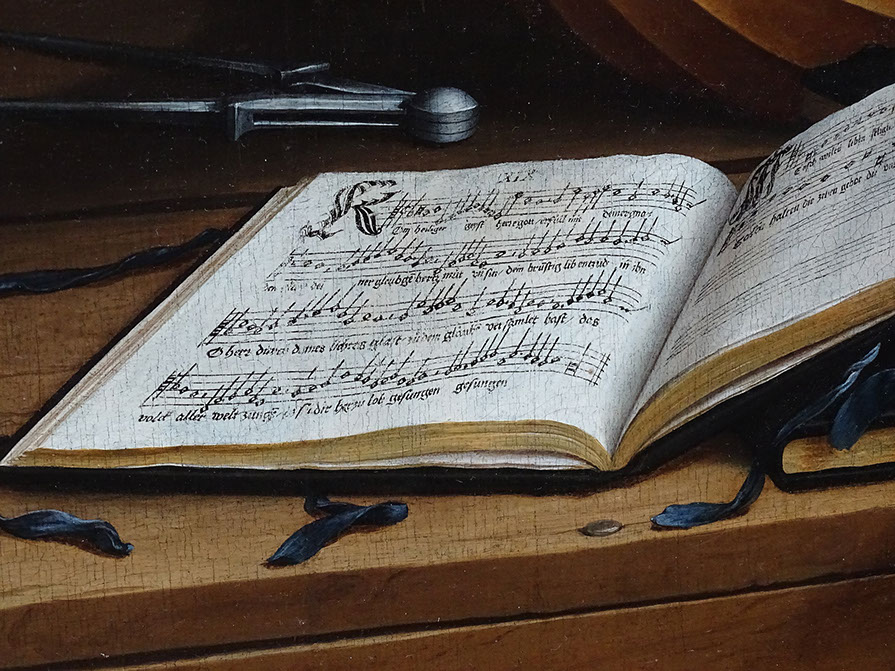 XIX
Kom heiliger geyst herregott erfüll mit deinergna/
den ner gleubgē hertz mut vn sin dein brüstig lib entzüd in ihn
O herr durch deines lichtes glast zu dem glaube versamlet hast das
volck aller welt zunge dir herr zu lob gesungen gesungen
wiltu
halten die zehen gebot die